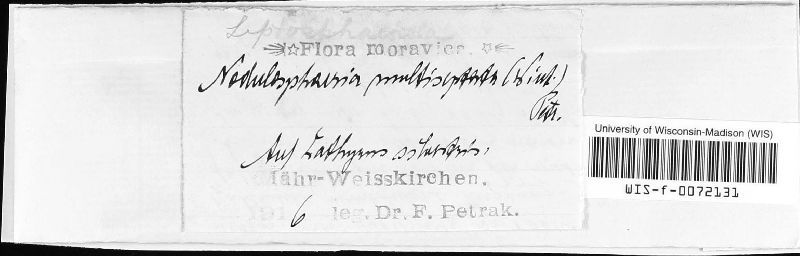 Leptosphaeria
Flora moravica.
Nodulosphaeria multiseptata (Wint.)
Petr.
Auf Lathyrus silvestris,
Mähr-Weisskirchen.
191 6 leg. Dr. F. Petrak.
University of Wisconsin-Madison (WIS)
WIS-f-0072131